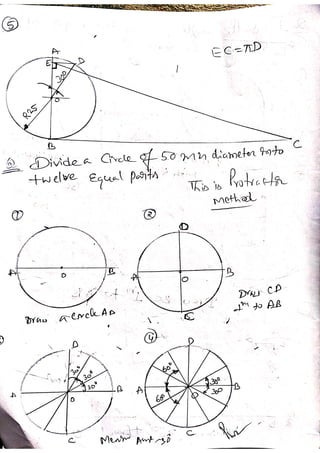 5
A
E D
EC=πD
30°
O
R25
B C
Divide a Circle of 50 mm diameter into
twelve Equal parts
This is Protractor
method
1 2
D
A O B
A O B
C
Draw CD
to AB
Draw a circle AB
4
D D
60° 30° 30° 30°
A O B A O B
60° 30° 30°
C C
Mark